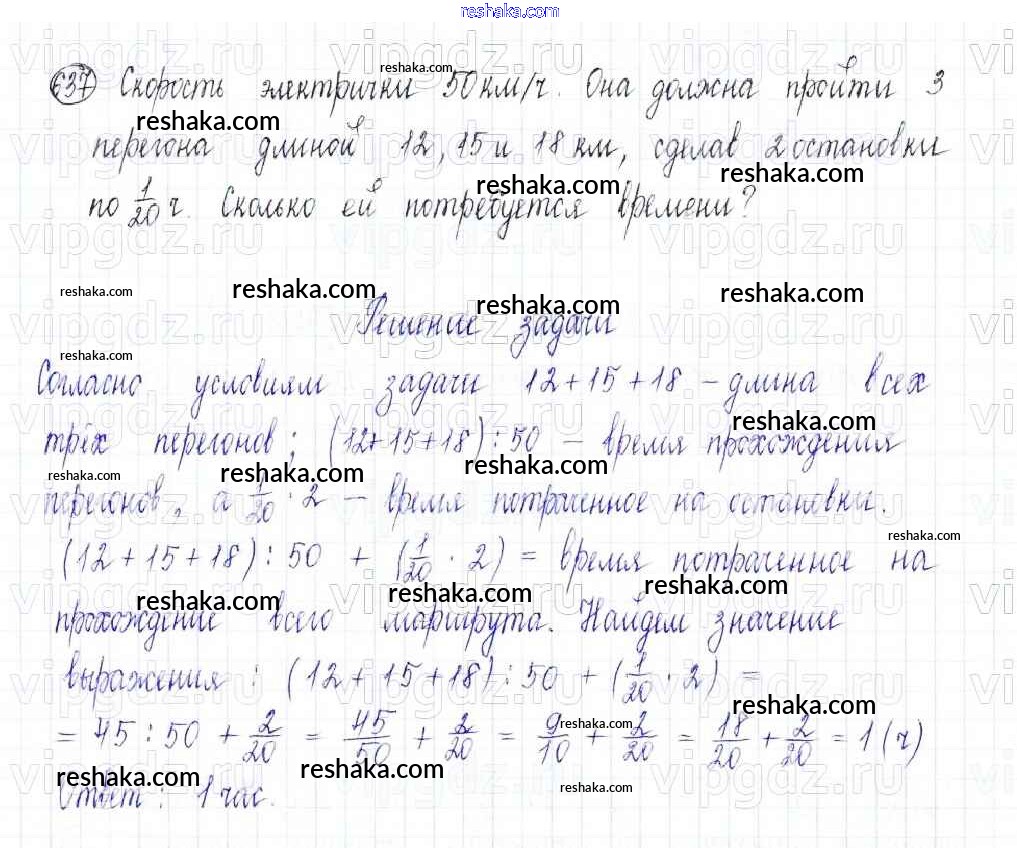 reshaka.com
637 Скорость электрички 50 км/ч. Она должна пройти 3
перегона длиной 12, 15 и 18 км, сделав 2 остановки
по 1/20 ч. Сколько ей потребуется времени?
Решение задачи
Согласно условиям задачи 12+15+18 – длина всех
трёх перегонов; (12+15+18):50 – время прохождения
перегонов, а 1/20 · 2 – время потраченное на остановки.
(12+15+18):50 + (1/20 · 2) = время потраченное на
прохождение всего маршрута. Найдем значение
выражения: (12+15+18):50 + (1/20 · 2) =
= 45:50 + 2/20 = 45/50 + 2/20 = 9/10 + 2/20 = 18/20 + 2/20 = 1 (ч)
Ответ: 1 час.